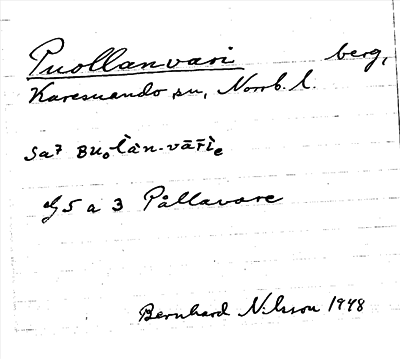 Puollanvari berg,
Karesuando sn, Norrb. l.
Sa7 Buoĺàn-vārìe
dj 5 a 3 Pållavare
Bernhard Nilsson 1948